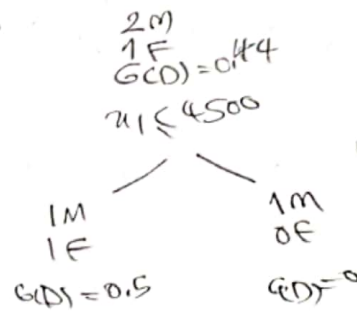 2M
1F
G(D)=0.44
x1≤4500
1M
1F
G(D)=0.5
1M
0F
G(D)=0